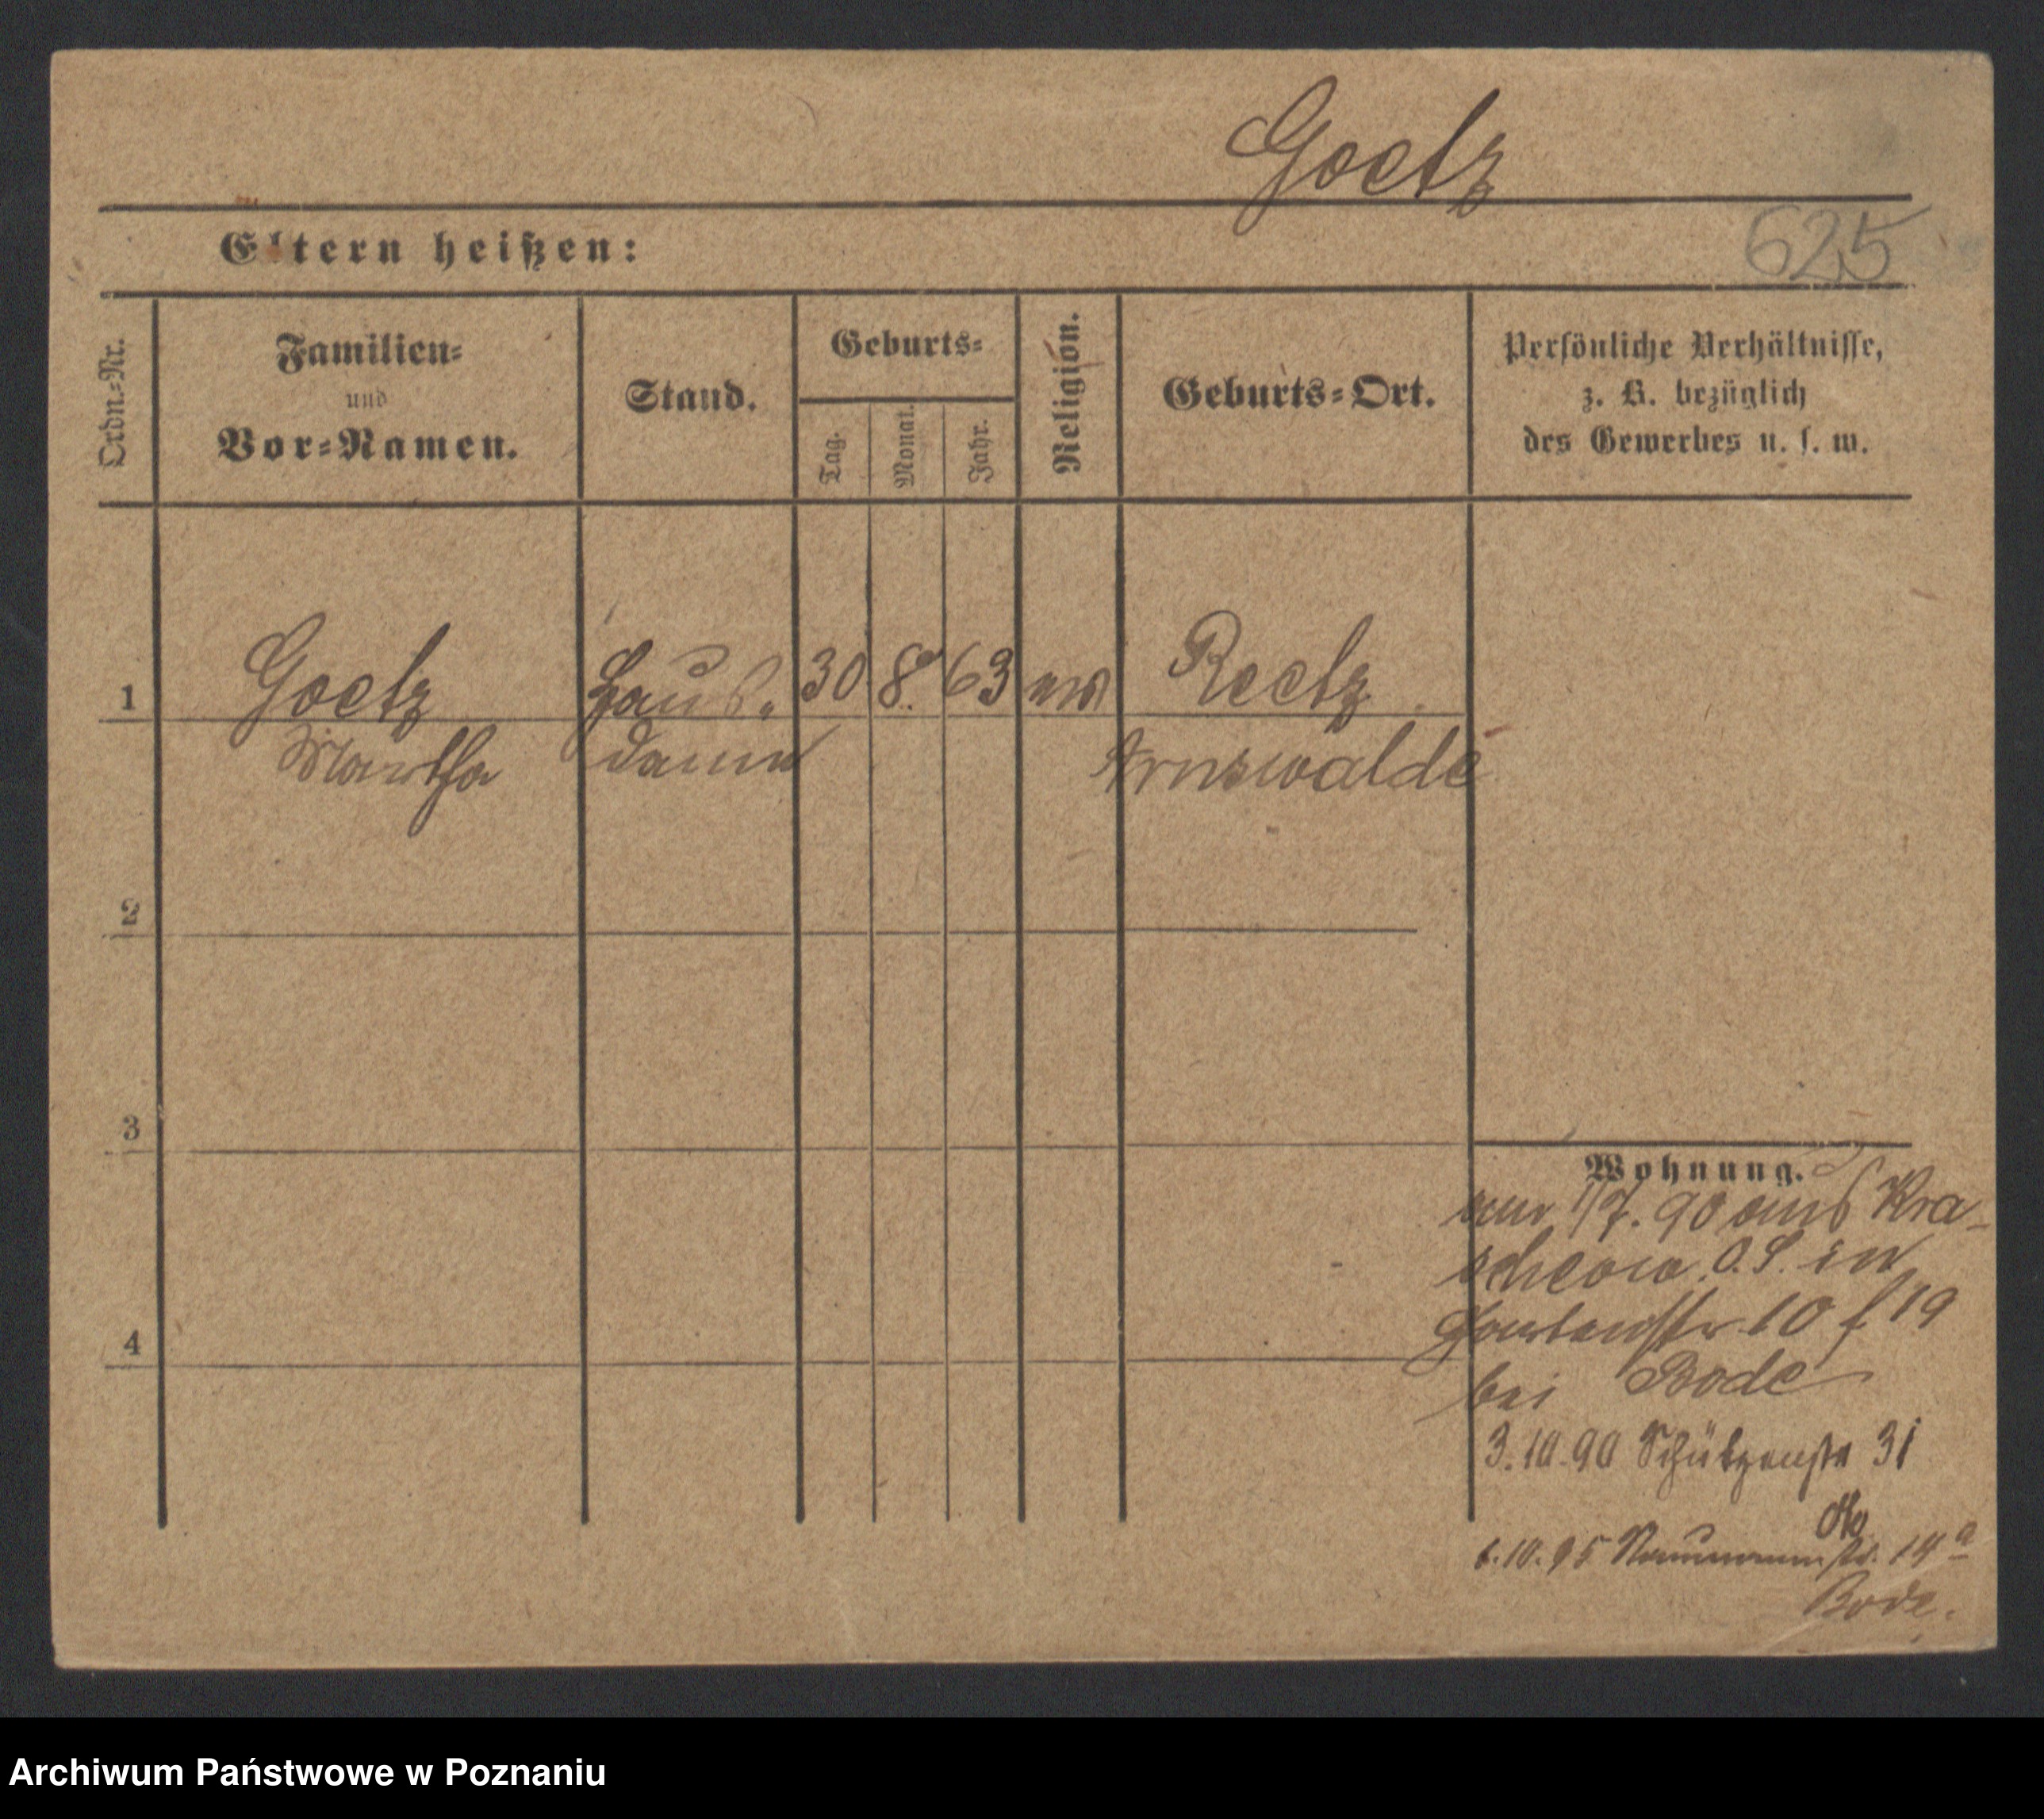 Goetz
625
Eltern heißen:
Ordn.=Nr.
Familien=
und
Vor=Namen.
Stand.
Geburts=
Tag.
Monat.
Jahr.
Religion.
Geburts=Ort.
Persönliche Verhältnisse,
z. B. bezüglich
des Gewerbes u. s. w.
1 Goetz Haus= 30 8. 63 ev Reetz
Martha dame Arnswalde
2
3
4
Wohnung.
am 1/7. 90 aus Kra-
scheow O.S. in
Gartenstr 10 f 19
bei Bode
3.10.90 Schützenstr 31
1.10.95 Naumannstr. 14a
Bode.
Archiwum Państwowe w Poznaniu